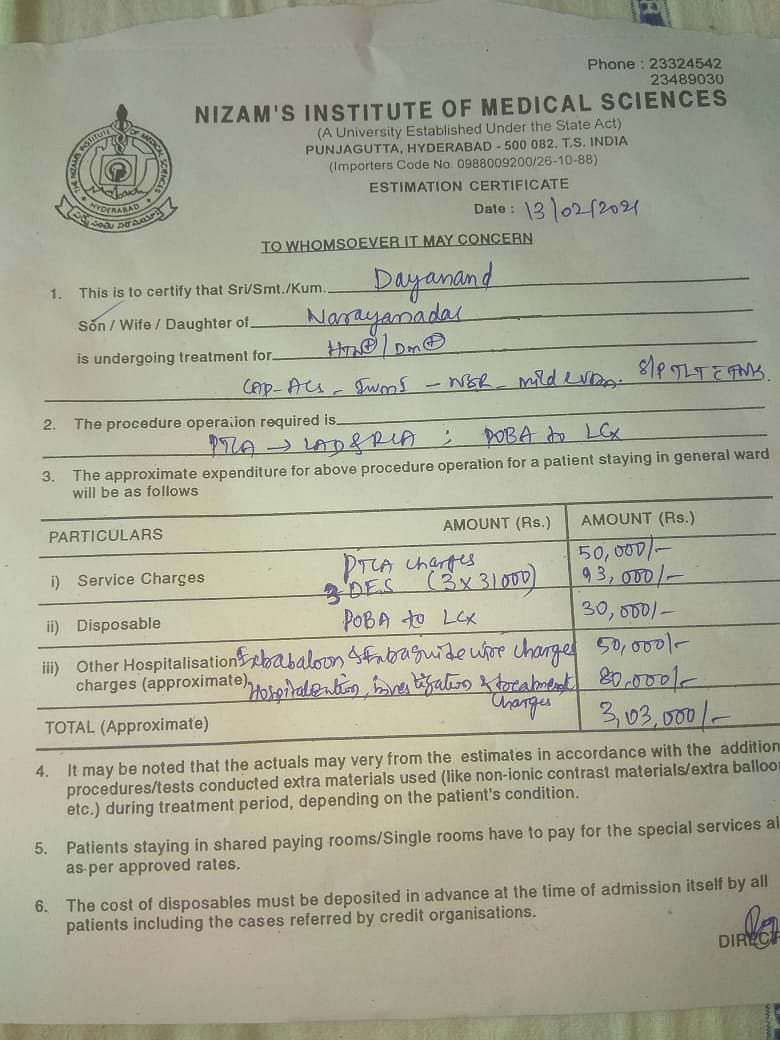 Phone : 23324542
23489030
NIZAM'S INSTITUTE OF MEDICAL SCIENCES
(A University Established Under the State Act)
PUNJAGUTTA, HYDERABAD - 500 082. T.S. INDIA
(Importers Code No. 0988009200/26-10-88)
ESTIMATION CERTIFICATE
Date : 13/02/2021
TO WHOMSOEVER IT MAY CONCERN
1. This is to certify that Sri/Smt./Kum. Dayanand
Son / Wife / Daughter of Narayanadas
is undergoing treatment for HTN⊕ / Dm⊕
CAD - ACS - IWMI - NSR - mild LVDn. S/P TLT
2. The procedure operation required is
PTCA → LAD & RCA ; POBA to LCx
3. The approximate expenditure for above procedure operation for a patient staying in general ward
will be as follows
PARTICULARS AMOUNT (Rs.) AMOUNT (Rs.)
i) Service Charges PTCA charges 50,000/-
3 DES (3 x 31000) 93,000/-
ii) Disposable POBA to LCx 30,000/-
iii) Other Hospitalisation Extrabaloon & Extraguide wire charges 50,000/-
charges (approximate) Hospitalization, investigation & treatment charges 80,000/-
TOTAL (Approximate) 3,03,000/-
4. It may be noted that the actuals may very from the estimates in accordance with the addition
procedures/tests conducted extra materials used (like non-ionic contrast materials/extra balloo
etc.) during treatment period, depending on the patient's condition.
5. Patients staying in shared paying rooms/Single rooms have to pay for the special services al
as per approved rates.
6. The cost of disposables must be deposited in advance at the time of admission itself by all
patients including the cases referred by credit organisations.
DIRECT